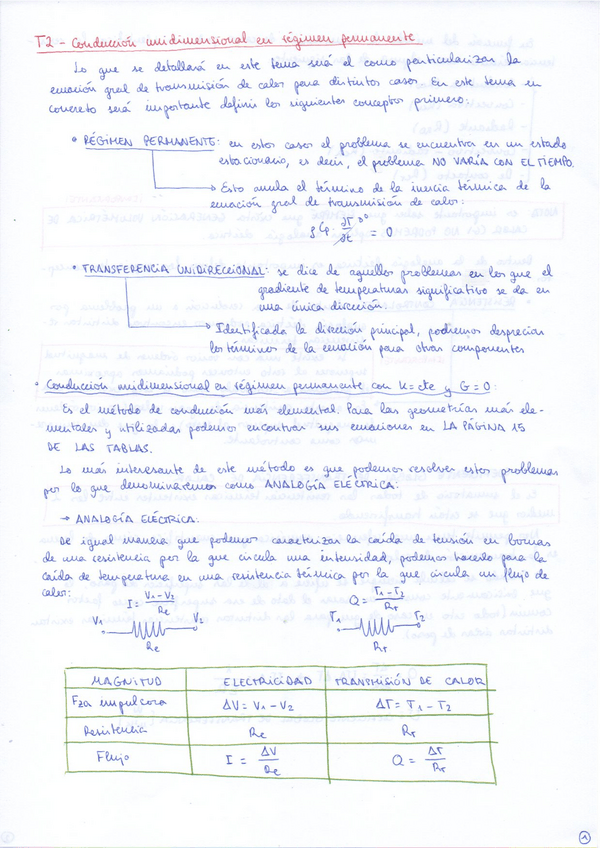 T2 - Conducción unidimensional en régimen permanente
Lo que se detallará en este tema será el como particularizar la
ecuación gral de transmisión de calor para distintos casos. En este tema en
concreto será importante definir los siguientes conceptos primero:
• RÉGIMEN PERMANENTE: en estos casos el problema se encuentra en un estado
estacionario, es decir, el problema NO VARÍA CON EL TIEMPO.
→ Esto anula el término de la inercia térmica de la
ecuación gral de transmisión de calor:
ρ Cp ∂T/∂t = 0
• TRANSFERENCIA UNIDIRECCIONAL: se dice de aquellos problemas en los que el
gradiente de temperaturas significativo se da en
una única dirección.
→ Identificada la dirección principal, podremos despreciar
los términos de la ecuación para otras componentes
• Conducción unidimensional en régimen permanente con K=cte y G=0:
Es el método de conducción más elemental. Para las geometrías más ele-
mentales y utilizadas podemos encontrar sus ecuaciones en LA PÁGINA 15
DE LAS TABLAS.
Lo más interesante de este método es que podemos resolver estos problemas
por lo que denominaremos como ANALOGÍA ELÉCTRICA:
→ ANALOGÍA ELÉCTRICA:
De igual manera que podemos caracterizar la caída de tensión en bornas
de una resistencia por la que circula una intensidad, podemos hacerlo para la
caída de temperatura en una resistencia térmica por la que circula un flujo de
calor:
I = V1-V2/Re Q = T1-T2/Rt
V1 V2 T1 T2
Re Rt
MAGNITUD ELECTRICIDAD TRANSMISIÓN DE CALOR
Fza impulsora ΔV = V1 - V2 ΔT = T1 - T2
Resistencia Re Rt
Flujo I = ΔV/Re Q = ΔT/Rt
1